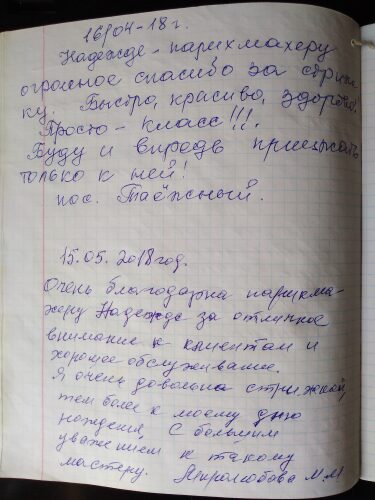 16/04-18г.
Надежде - парикмахеру
огромное спасибо за стриж-
ку. Быстро, красиво, здорово!
Просто - класс!!!.
Буду и впредь приезжать
только к ней!
пос. Таёжный.
15.05.2018год.
Очень благодарна парикма-
херу Надежде за отличное
внимание к клиентам и
хорошее обслуживание.
Я очень довольна стрижкой,
тем более к моему дню
рождения. С большим
уважением к такому
мастеру. Миролюбова М.М